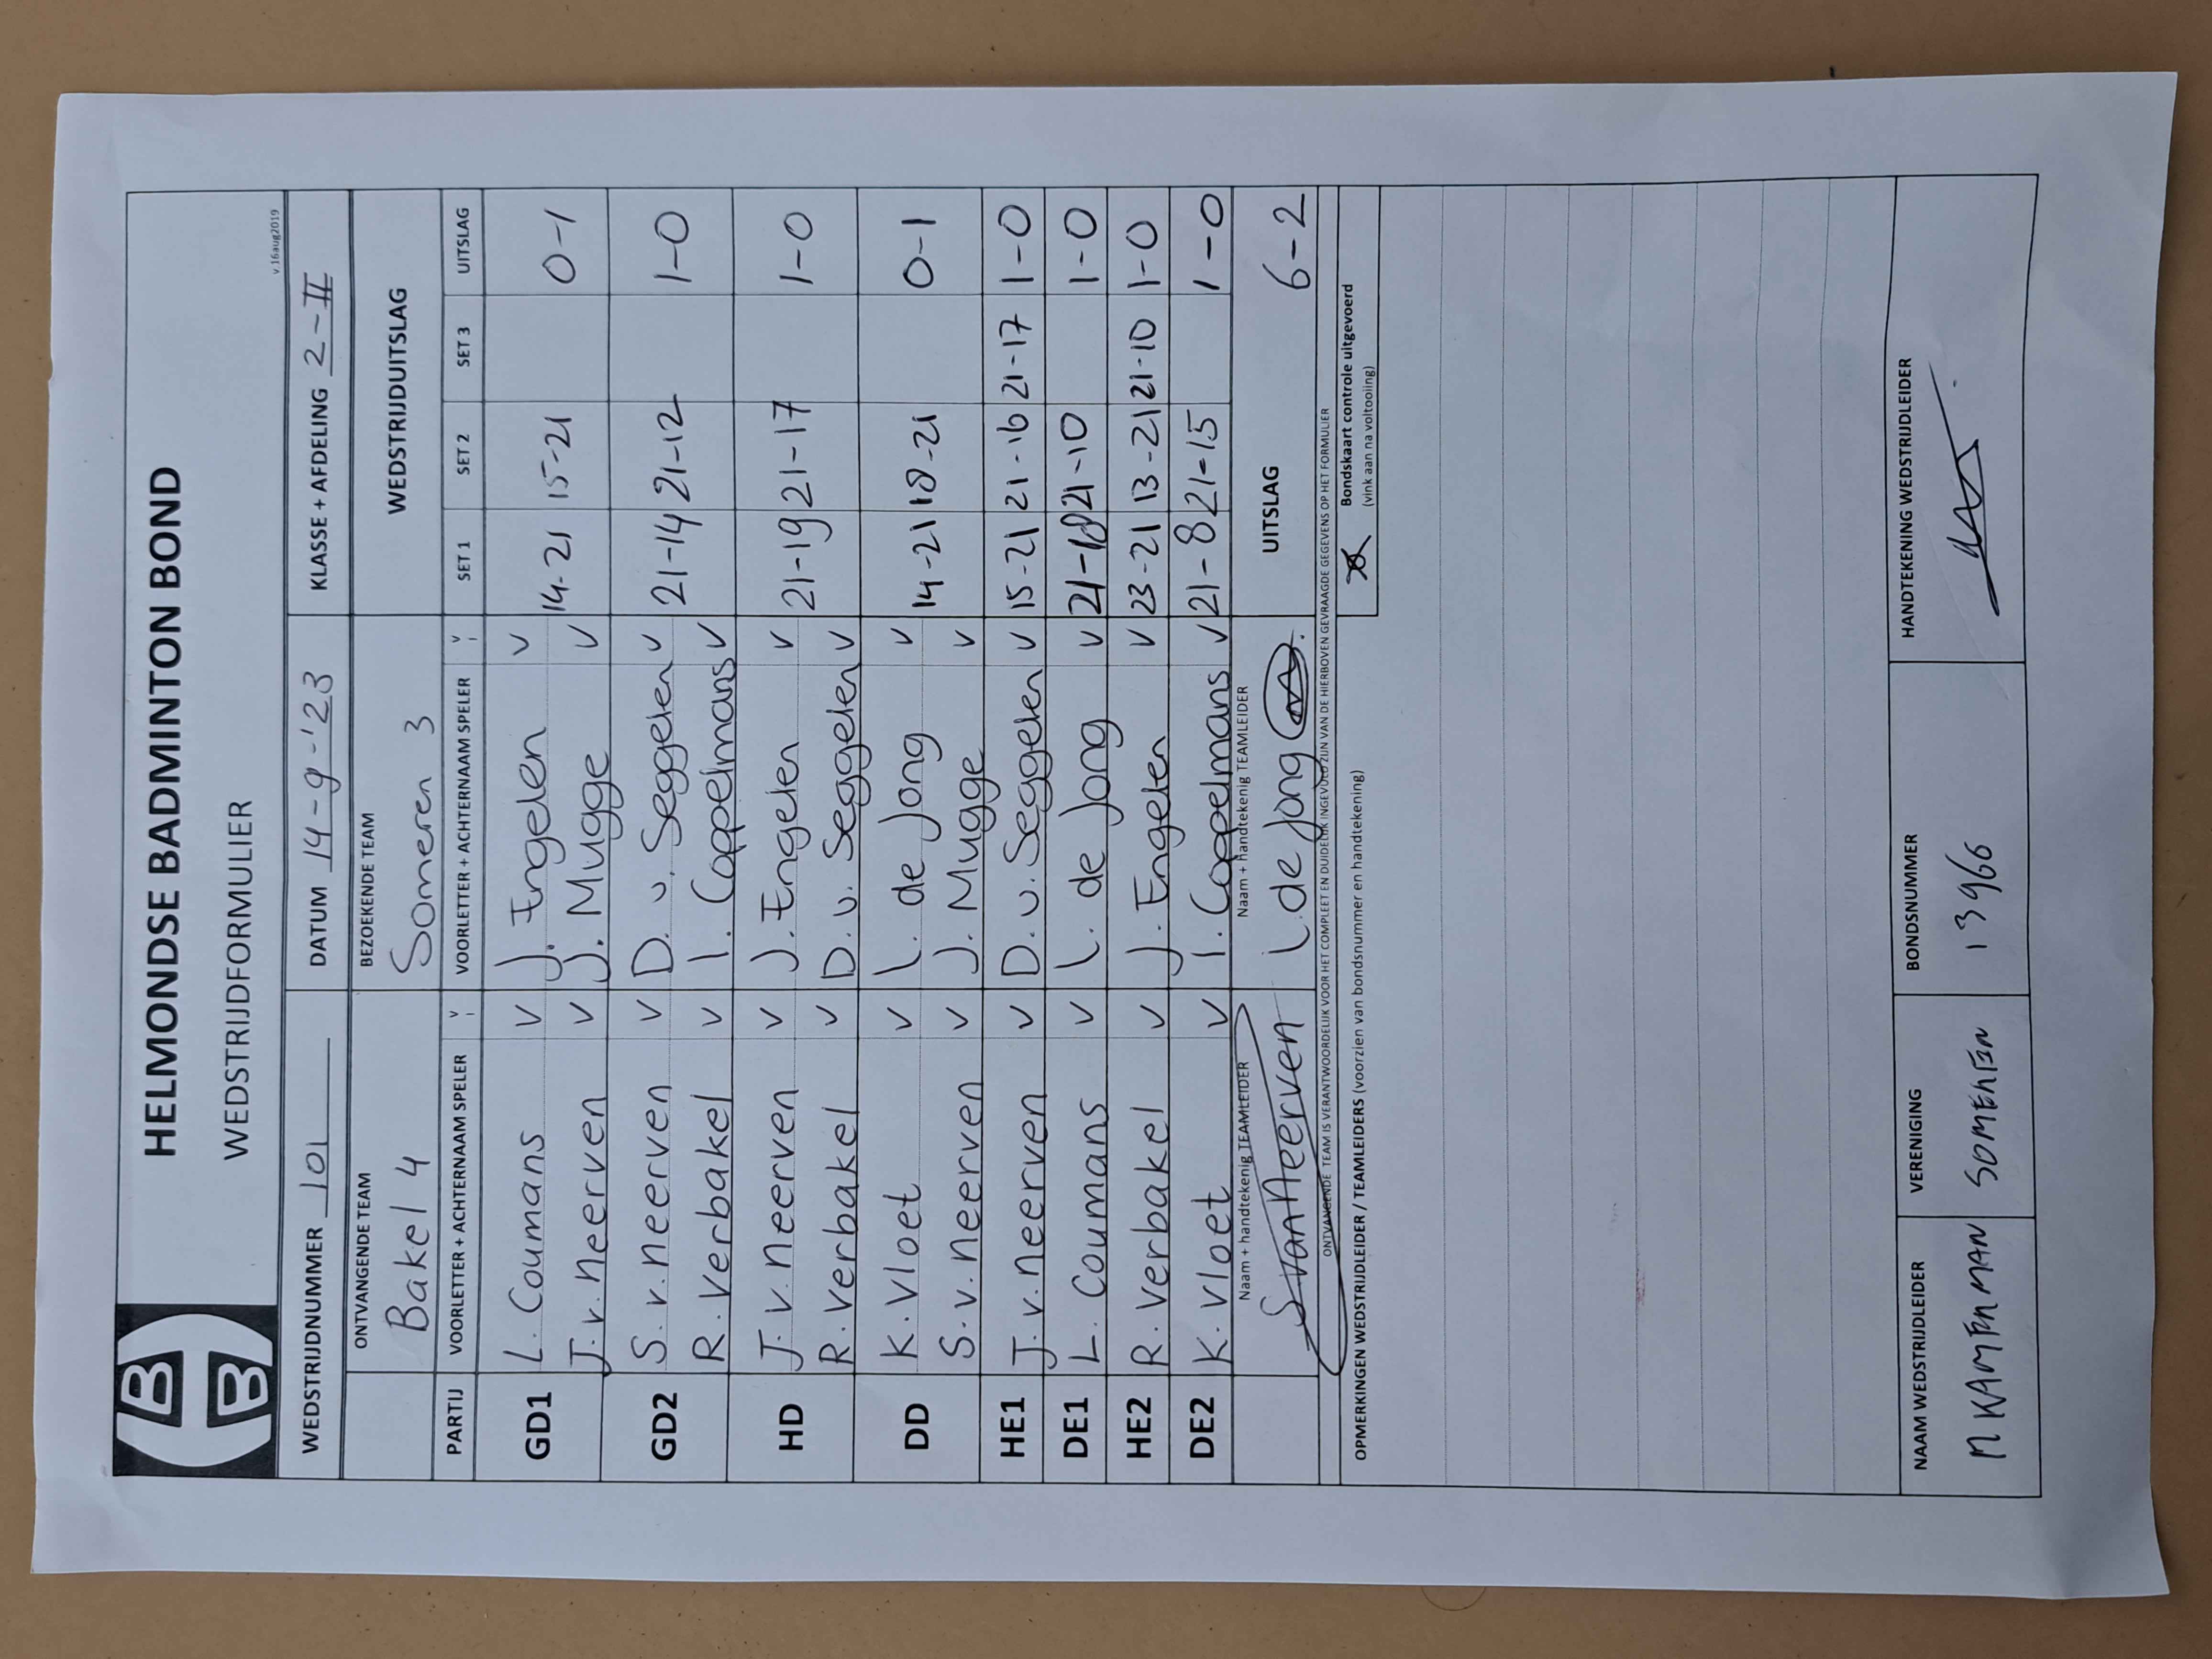 HELMONDSE BADMINTON BOND
WEDSTRIJDFORMULIER
v.16aug2019
WEDSTRIJDNUMMER 101 DATUM 14-9-'23 KLASSE + AFDELING 2-II
ONTVANGENDE TEAM BEZOEKENDE TEAM WEDSTRIJDUITSLAG
Bakel 4 Someren 3
PARTIJ VOORLETTER + ACHTERNAAM SPELER V VOORLETTER + ACHTERNAAM SPELER V SET 1 SET 2 SET 3 UITSLAG
GD1 L. Coumans V J. Engelen V 14-21 15-21 0-1
J. v. neerven V J. Mugge V
GD2 S. v. neerven V D. v. Seggelen V 21-14 21-12 1-0
R. verbakel V I. Coppelmans V
HD J. v. neerven V J. Engelen V 21-19 21-17 1-0
R. verbakel V D. v. Seggelen V
DD K. Vloet V L. de Jong V 14-21 18-21 0-1
S. v. neerven V J. Mugge V
HE1 J. v. neerven V D. v. Seggelen V 15-21 21-16 21-17 1-0
DE1 L. Coumans V L. de Jong V 21-18 21-10 1-0
HE2 R. verbakel V J. Engelen V 23-21 13-21 21-10 1-0
DE2 K. Vloet V I. Coppelmans V 21-8 21-15 1-0
Naam + handtekenig TEAMLEIDER Naam + handtekenig TEAMLEIDER UITSLAG 6-2
S van Neerven L. de Jong
ONTVANGENDE TEAM IS VERANTWOORDELIJK VOOR HET COMPLEET EN DUIDELIJK INGEVULD ZIJN VAN DE HIERBOVEN GEVRAAGDE GEGEVENS OP HET FORMULIER
OPMERKINGEN WEDSTRIJDLEIDER / TEAMLEIDERS (voorzien van bondsnummer en handtekening)
X Bondskaart controle uitgevoerd
(vink aan na voltooiing)
NAAM WEDSTRIJDLEIDER VERENIGING BONDSNUMMER HANDTEKENING WEDSTRIJDLEIDER
M KAMERMAN SOMEREN 13966